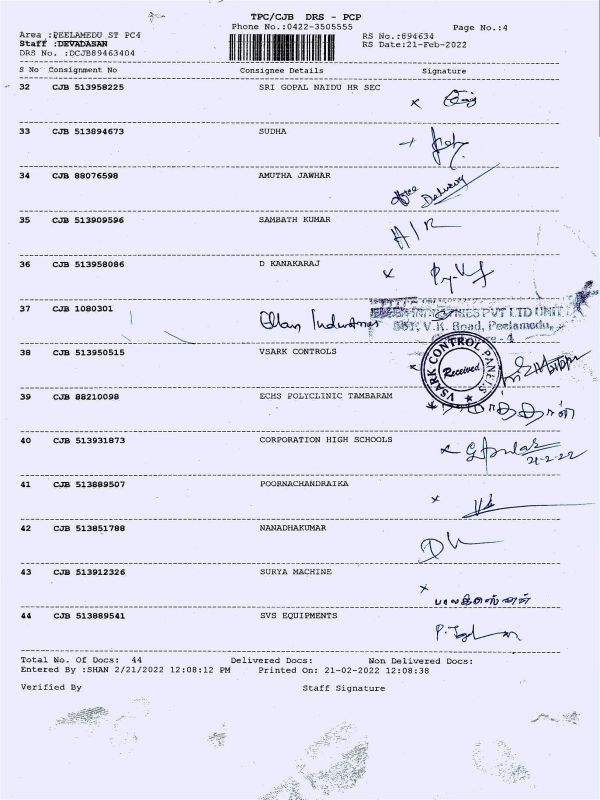 TPC/CJB DRS - PCP
Phone No.:0422-3505555
Page No.:4
Area :PEELAMEDU ST PC4
Staff :DEVADASAN
DRS No. :DCJB89463404
RS No.:894634
RS Date:21-Feb-2022
S No Consignment No Consignee Details Signature
32 CJB 513958225 SRI GOPAL NAIDU HR SEC
33 CJB 513894673 SUDHA
34 CJB 88076598 AMUTHA JAWHAR
Delivery
35 CJB 513909596 SAMBATH KUMAR
36 CJB 513958086 D KANAKARAJ
37 CJB 1080301
PVT LTD UNIT
V.K. Road, Peelamedu,
38 CJB 513950515 VSARK CONTROLS
VSARK CONTROL PANELS
Received
39 CJB 88210098 ECHS POLYCLINIC TAMBARAM
40 CJB 513931873 CORPORATION HIGH SCHOOLS
21-2-22
41 CJB 513889507 POORNACHANDRAIKA
42 CJB 513851788 NANADHAKUMAR
43 CJB 513912326 SURYA MACHINE
44 CJB 513889541 SVS EQUIPMENTS
Total No. Of Docs: 44 Delivered Docs: Non Delivered Docs:
Entered By :SHAN 2/21/2022 12:08:12 PM Printed On: 21-02-2022 12:08:38
Verified By Staff Signature